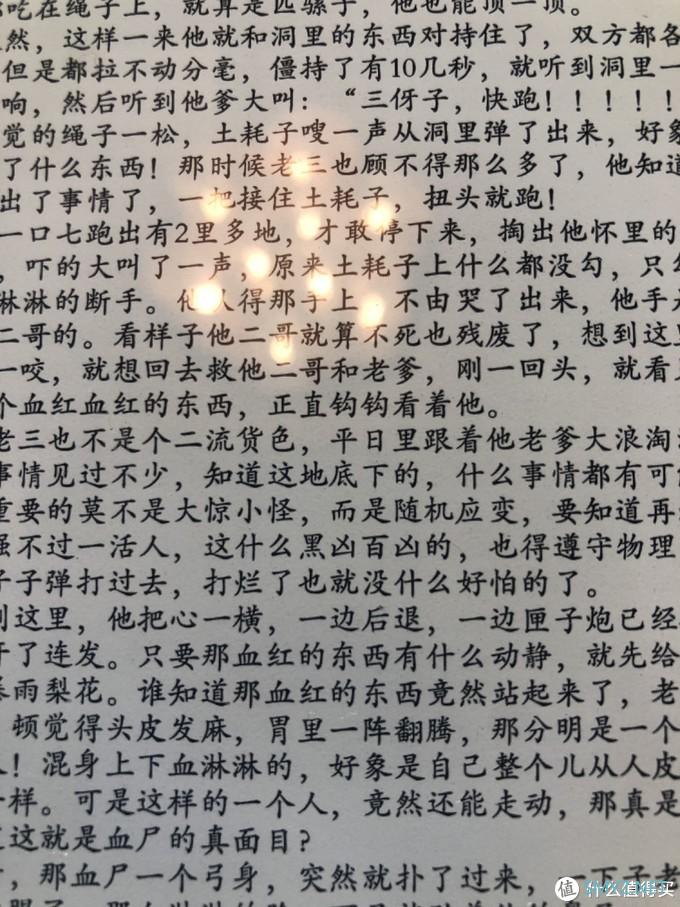 吃在绳子上，就算是匹骡子，他也能顶一顶。
然，这样一来他就和洞里的东西对持住了，双方都各
但是都拉不动分毫，僵持了有10几秒，就听到洞里一
响，然后听到他爹大叫：“三伢子，快跑！！！！！
觉的绳子一松，土耗子嗖一声从洞里弹了出来，好象
了什么东西！那时候老三也顾不得那么多了，他知道
出了事情了，一把接住土耗子，扭头就跑！
一口七跑出有2里多地，才敢停下来，掏出他怀里的
，吓的大叫了一声，原来土耗子上什么都没勾，只勾
淋淋的断手。他认得那手上，不由哭了出来，他手是
二哥的。看样子他二哥就算不死也残废了，想到这里
一咬，就想回去救他二哥和老爹，刚一回头，就看见
个血红血红的东西，正直钩钩看着他。
老三也不是个二流货色，平日里跟着他老爹大浪淘沙
事情见过不少，知道这地底下的，什么事情都有可能
重要的莫不是大惊小怪，而是随机应变，要知道再
强不过一活人，这什么黑凶百凶的，也得遵守物理
子子弹打过去，打烂了也就没什么好怕的了。
到这里，他把心一横，一边后退，一边匣子炮已经
开了连发。只要那血红的东西有什么动静，就先给
暴雨梨花。谁知道那血红的东西竟然站起来了，老
顿觉得头皮发麻，胃里一阵翻腾，那分明是一个
人！混身上下血淋淋的，好象是自己整个儿从人皮
一样。可是这样的一个人，竟然还能走动，那真是
这就是血尸的真面目？
，那血尸一个弓身，突然就扑了过来，一下子老
值 什么值得买